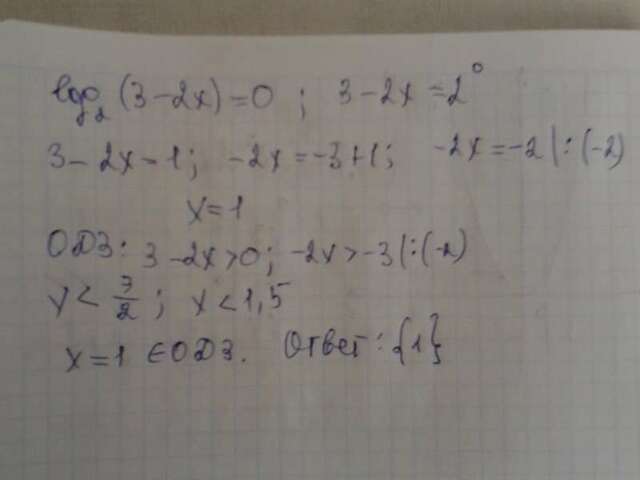 log₂(3-2x)=0 ; 3-2x=2⁰
3-2x-1; -2x=-3+1; -2x=-2|:(-2)
x=1
ОДЗ: 3-2x>0; -2x>-3|:(-2)
x<3/2; x<1,5
x=1 ∈ОДЗ. Ответ: {1}